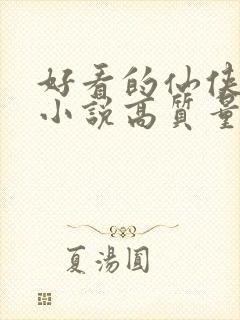 好看的仙侠
小說高質量
夏湯圓